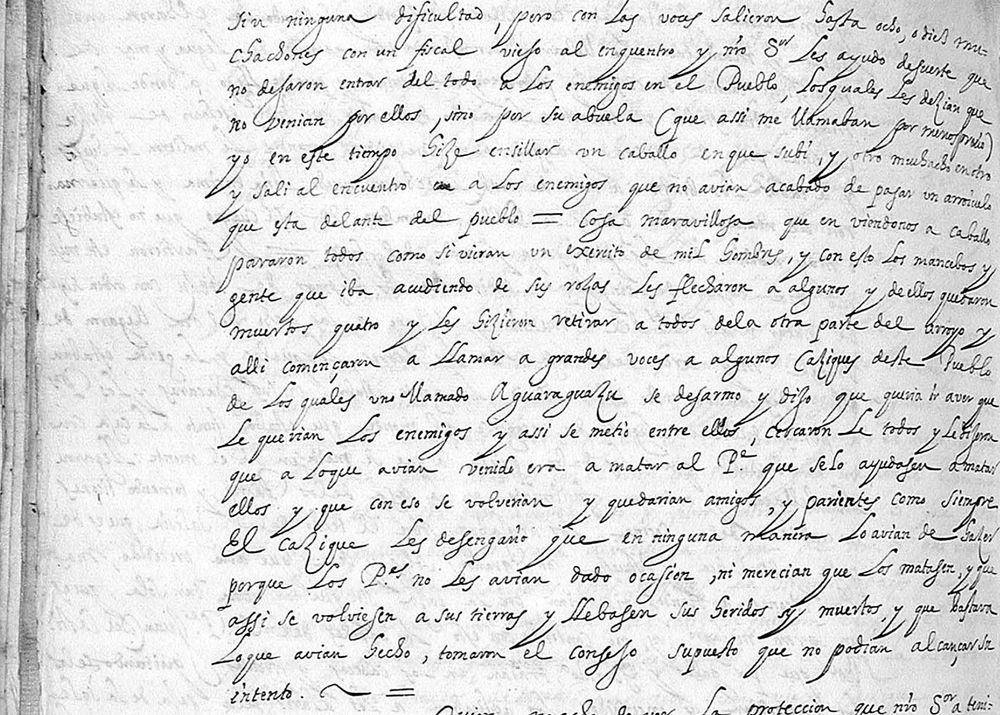 sin ninguna dificultad, pero con las voces salieron hasta ocho, o diez mu-
chachones con un fiscal viejo al enquentro y nr̃o Sor les ayudo desuerte que
no dejaron entrar del todo a los enemigos en el Pueblo, los quales les dezian que
no venian por ellos, sino por su abuela (que assi me llamaban por menosprecio)
yo en este tiempo hize ensillar un caballo en que subi, y otro muchacho en otro
y sali al encuentro a los enemigos que no avian acabado de pasar un arroiuelo
que esta delante del pueblo = Cosa maravillosa que en viendonos a caballo
pararon todos como si vieran un exercito de mil hombres, y con esto los mancebos y
gente que iba acudiendo de sus rozas les flecharon a algunos y de ellos quedaron
muertos quatro y les hizieron retirar a todos dela otra parte del arroyo y
alli començaron a llamar a grandes voces a algunos caziques deste Pueblo
de los quales uno llamado Aguaraguazu se desarmo y dijo que queria ir aver que
le querian los enemigos y assi se metio entre ellos, cercaron le todos y le dijeron
que a loque avian venido era a matar al Pe que selo ayudasen a matar
ellos y que con eso se volverian y quedarian amigos, y parientes como siempre
El cazique les desengaño que en ninguna manera lo avian de hazer
porque los Pes no les avian dado ocasion, ni merecian que los matasen, y que
assi se volviesen a sus tierras y llebasen sus heridos y muertos, y que bastava
loque avian hecho, tomaron el consejo supuesto que no podian alcançar su
intento. =
la proteccion que nr̃o Sor a teni-